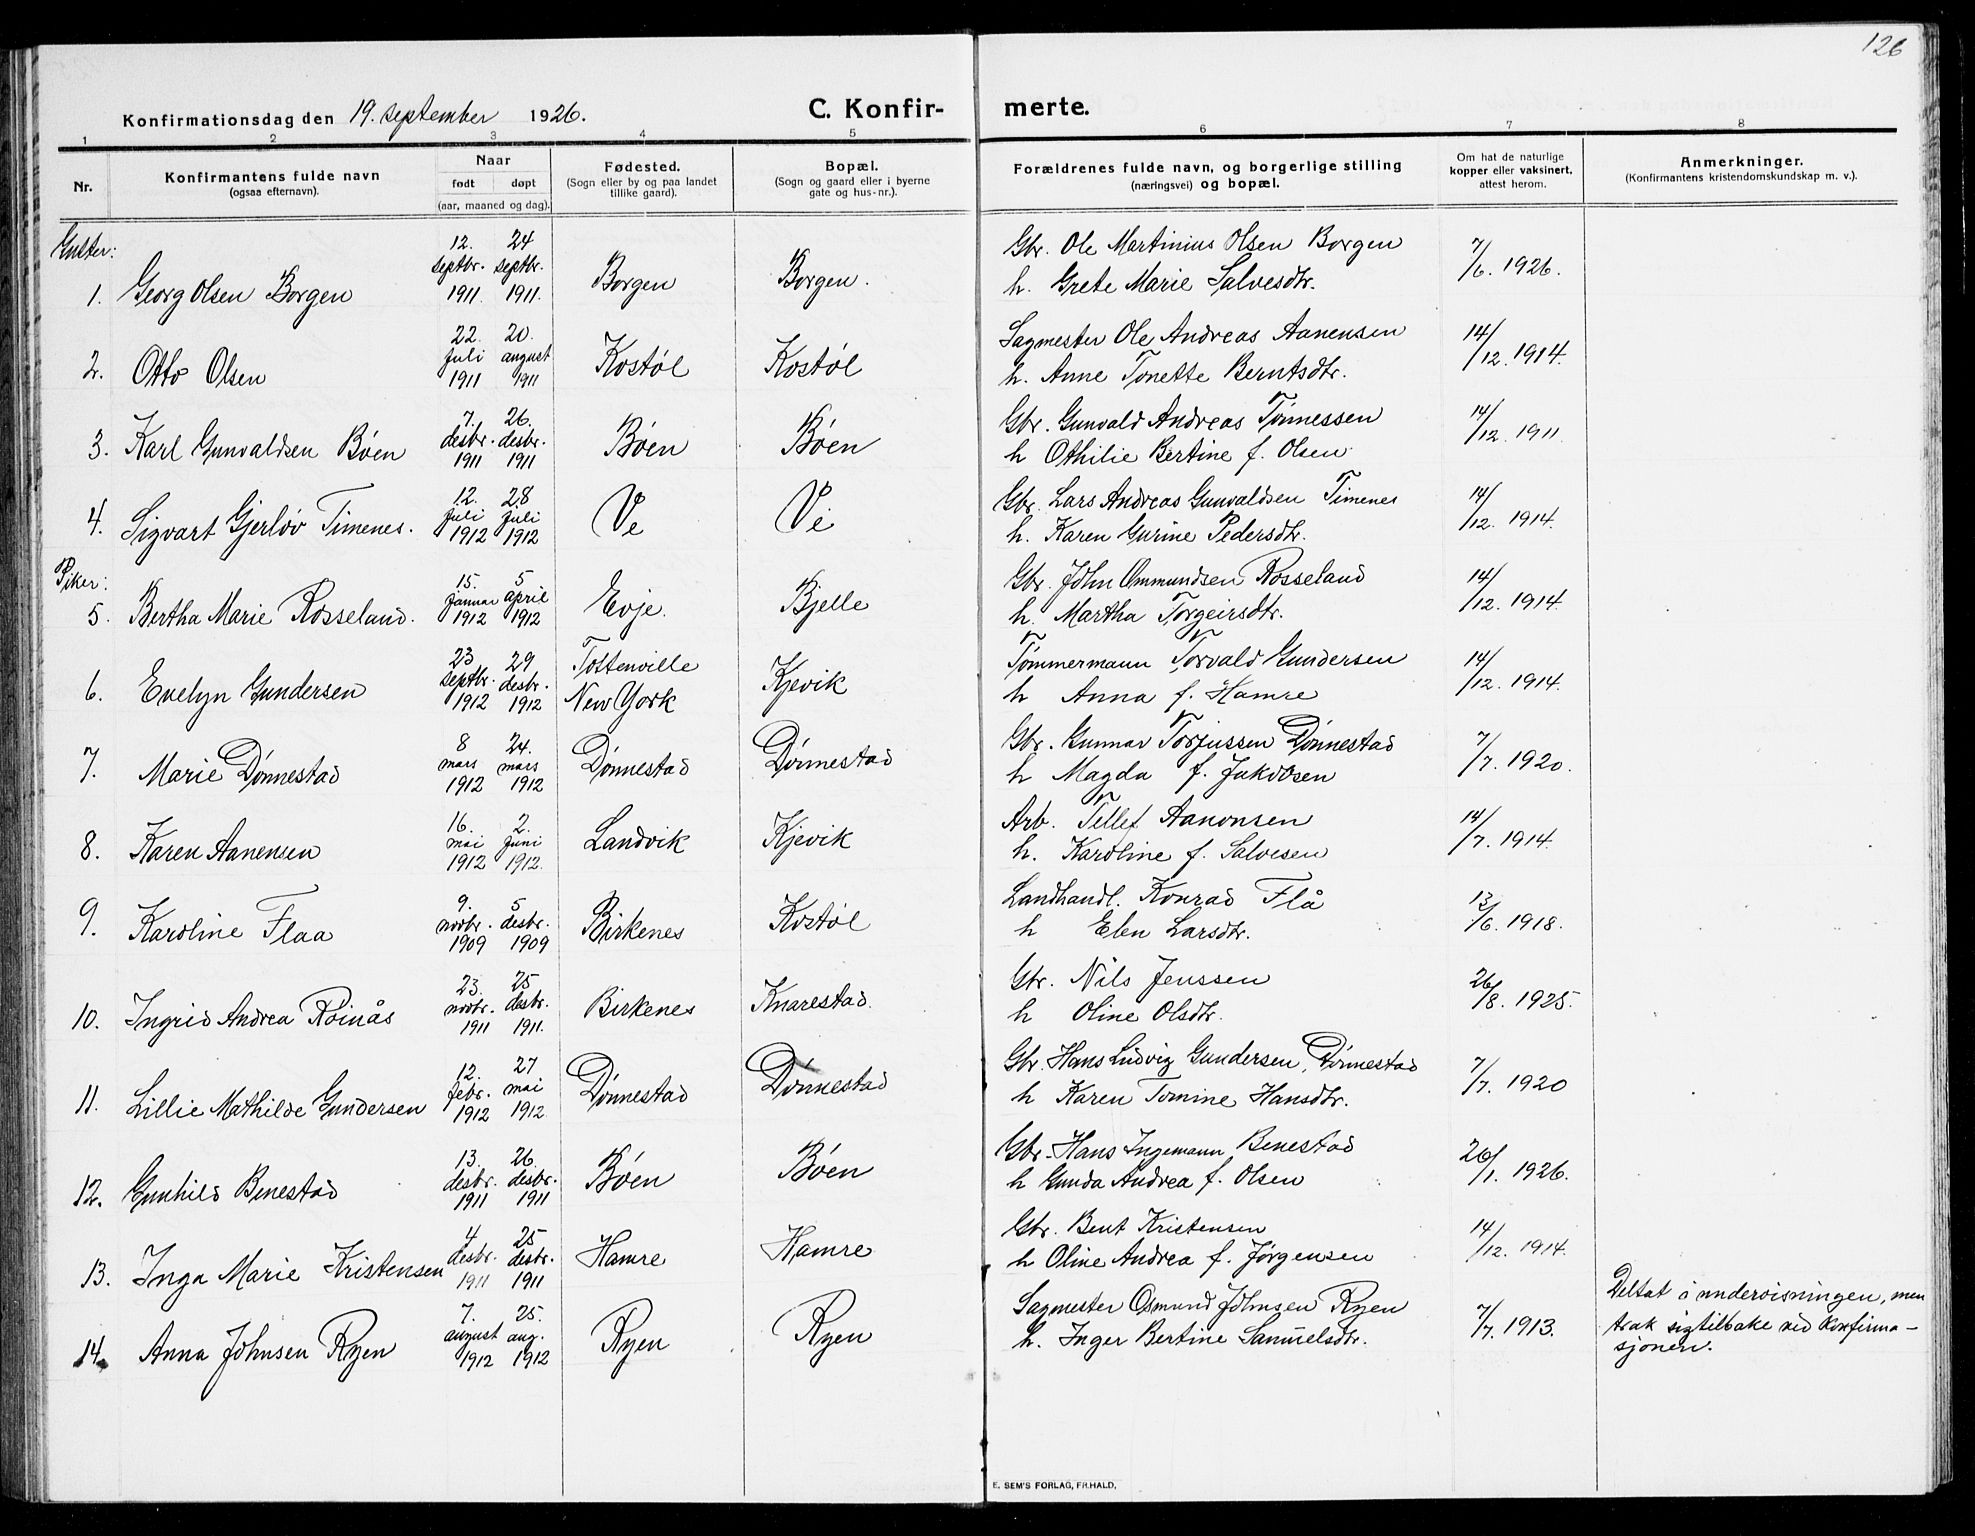 126
Konfirmationsdag den 19. september 1926.
C. Konfir-
merte.
1 2 3 4 5 6 7 8
Nr.
Konfirmantens fulde navn
(ogsaa efternavn).
Naar
født døpt
(aar, maaned og dag).
Fødested.
(Sogn eller by og paa landet
tillike gaard).
Bopæl.
(Sogn og gaard eller i byerne
gate og hus-nr.).
Forældrenes fulde navn, og borgerlige stilling
(næringsvei) og bopæl.
Om hat de naturlige
kopper eller vaksinert,
attest herom.
Anmerkninger.
(Konfirmantens kristendomskundskap m. v.).
Gutter:
1. Georg Olsen Borgen
12. septbr. 1911.
24 septbr. 1911.
Borgen
Borgen.
Gbr. Ole Martinius Olsen Borgen
h. Grete Marie Salvesdtr.
7/6. 1926.
2. Otto Olsen
22. juli 1911
20. august 1911
Kostøl
Kostøl
Sagmester Ole Andreas Aanensen
h. Anne Tonette Berntsdtr.
14/12. 1914.
3. Karl Gunvaldsen Bøen
7. desbr. 1911
26. desbr. 1911
Bøen
Bøen
Gbr. Gunvald Andreas Tønnessen
h Othilie Bertine f. Olsen
14/12. 1911.
4. Sigvart Gjerløv Timenes.
12. juli 1912
28. juli 1912
Ve
Ve
Gbr. Lars Andreas Gunvaldsen Timenes
h. Karen Gurine Pedersdtr.
14/12. 1914.
Piker:
5. Bertha Marie Rosseland.
15. januar 1912
5 april 1912
Evje.
Bjelle
Gbr. John Ommundsen Rosseland
h. Martha Torgeirsdtr.
14/12. 1914.
6. Evelyn Gundersen
23 septbr. 1912
29 desbr. 1912
Tottenville
New York
Kjevik
Tømmermann Torvald Gundersen
h Anna f. Hamre
14/12. 1914.
7. Marie Dønnestad
8 mars 1912
24. mars 1912
Dønnestad
Dønnestad
Gbr. Gunnar Torjussen Dønnestad
h Magda f. Jakobsen
7/7. 1920.
8. Karen Aanensen
16. mai 1912
2. juni 1912.
Landvik
Kjevik
Arb. Tellef Aanonsen
h. Karoline f. Salvesen
14/7. 1914.
9. Karoline Flaa
9. novbr. 1909
5 desbr. 1909
Birkenes
Kostøl
Landhandl. Konrad Flå
h Elen Larsdtr.
13/6. 1918.
10. Ingrid Andrea Røinås
23. novbr. 1911
25 desbr. 1911.
Birkenes
Knarestad.
Gbr. Nils Jenssen
h Oline Olsdtr.
26/8. 1925.
11. Lillie Mathilde Gundersen
12. febr. 1912
27 mai 1912.
Dønnestad
Dønnestad
Gbr. Hans Ludvig Gundersen, Dønnestad
h Karen Tomine Hansdtr.
7/7. 1920
12. Gunhild Benestad
13. desbr. 1911
26 desbr. 1911
Bøen
Bøen
Gbr. Hans Ingemann Benestad
h Gunda Andrea f. Olsen
26/1. 1926.
13. Inga Marie Kristensen
4 desbr. 1911
25 desbr. 1911
Hamre
Hamre
Gbr. Bent Kristensen
h Oline Andrea f. Jørgensen
14/12. 1914.
14. Anna Johnsen Ryen
7. august 1912
25. aug. 1912
Ryen
Ryen
Sagmester Osmund Johnsen Ryen
h. Inger Bertine Samuelsdtr.
7/7. 1913.
Deltat i undervisningen, men
trak sig tilbake ved konfirma-
sjonen.
E. SEM'S FORLAG, FR.HALD.